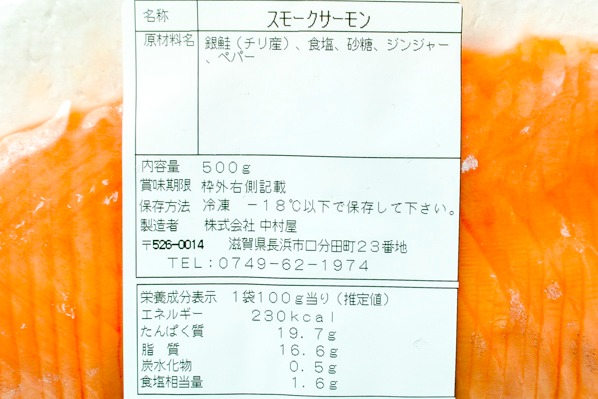 名称 スモークサーモン
原材料名 銀鮭（チリ産）、食塩、砂糖、ジンジャー
、ペパー
内容量 ５００ｇ
賞味期限 枠外右側記載
保存方法 冷凍 －１８℃以下で保存して下さい。
製造者 株式会社 中村屋
〒526-0014 滋賀県長浜市口分田町２３番地
ＴＥＬ：０７４９－６２－１９７４
栄養成分表示 １袋１００ｇ当り（推定値）
エネルギー ２３０ｋｃａｌ
たんぱく質 １９．７ｇ
脂 質 １６．６ｇ
炭水化物 ０．５ｇ
食塩相当量 １．６ｇ